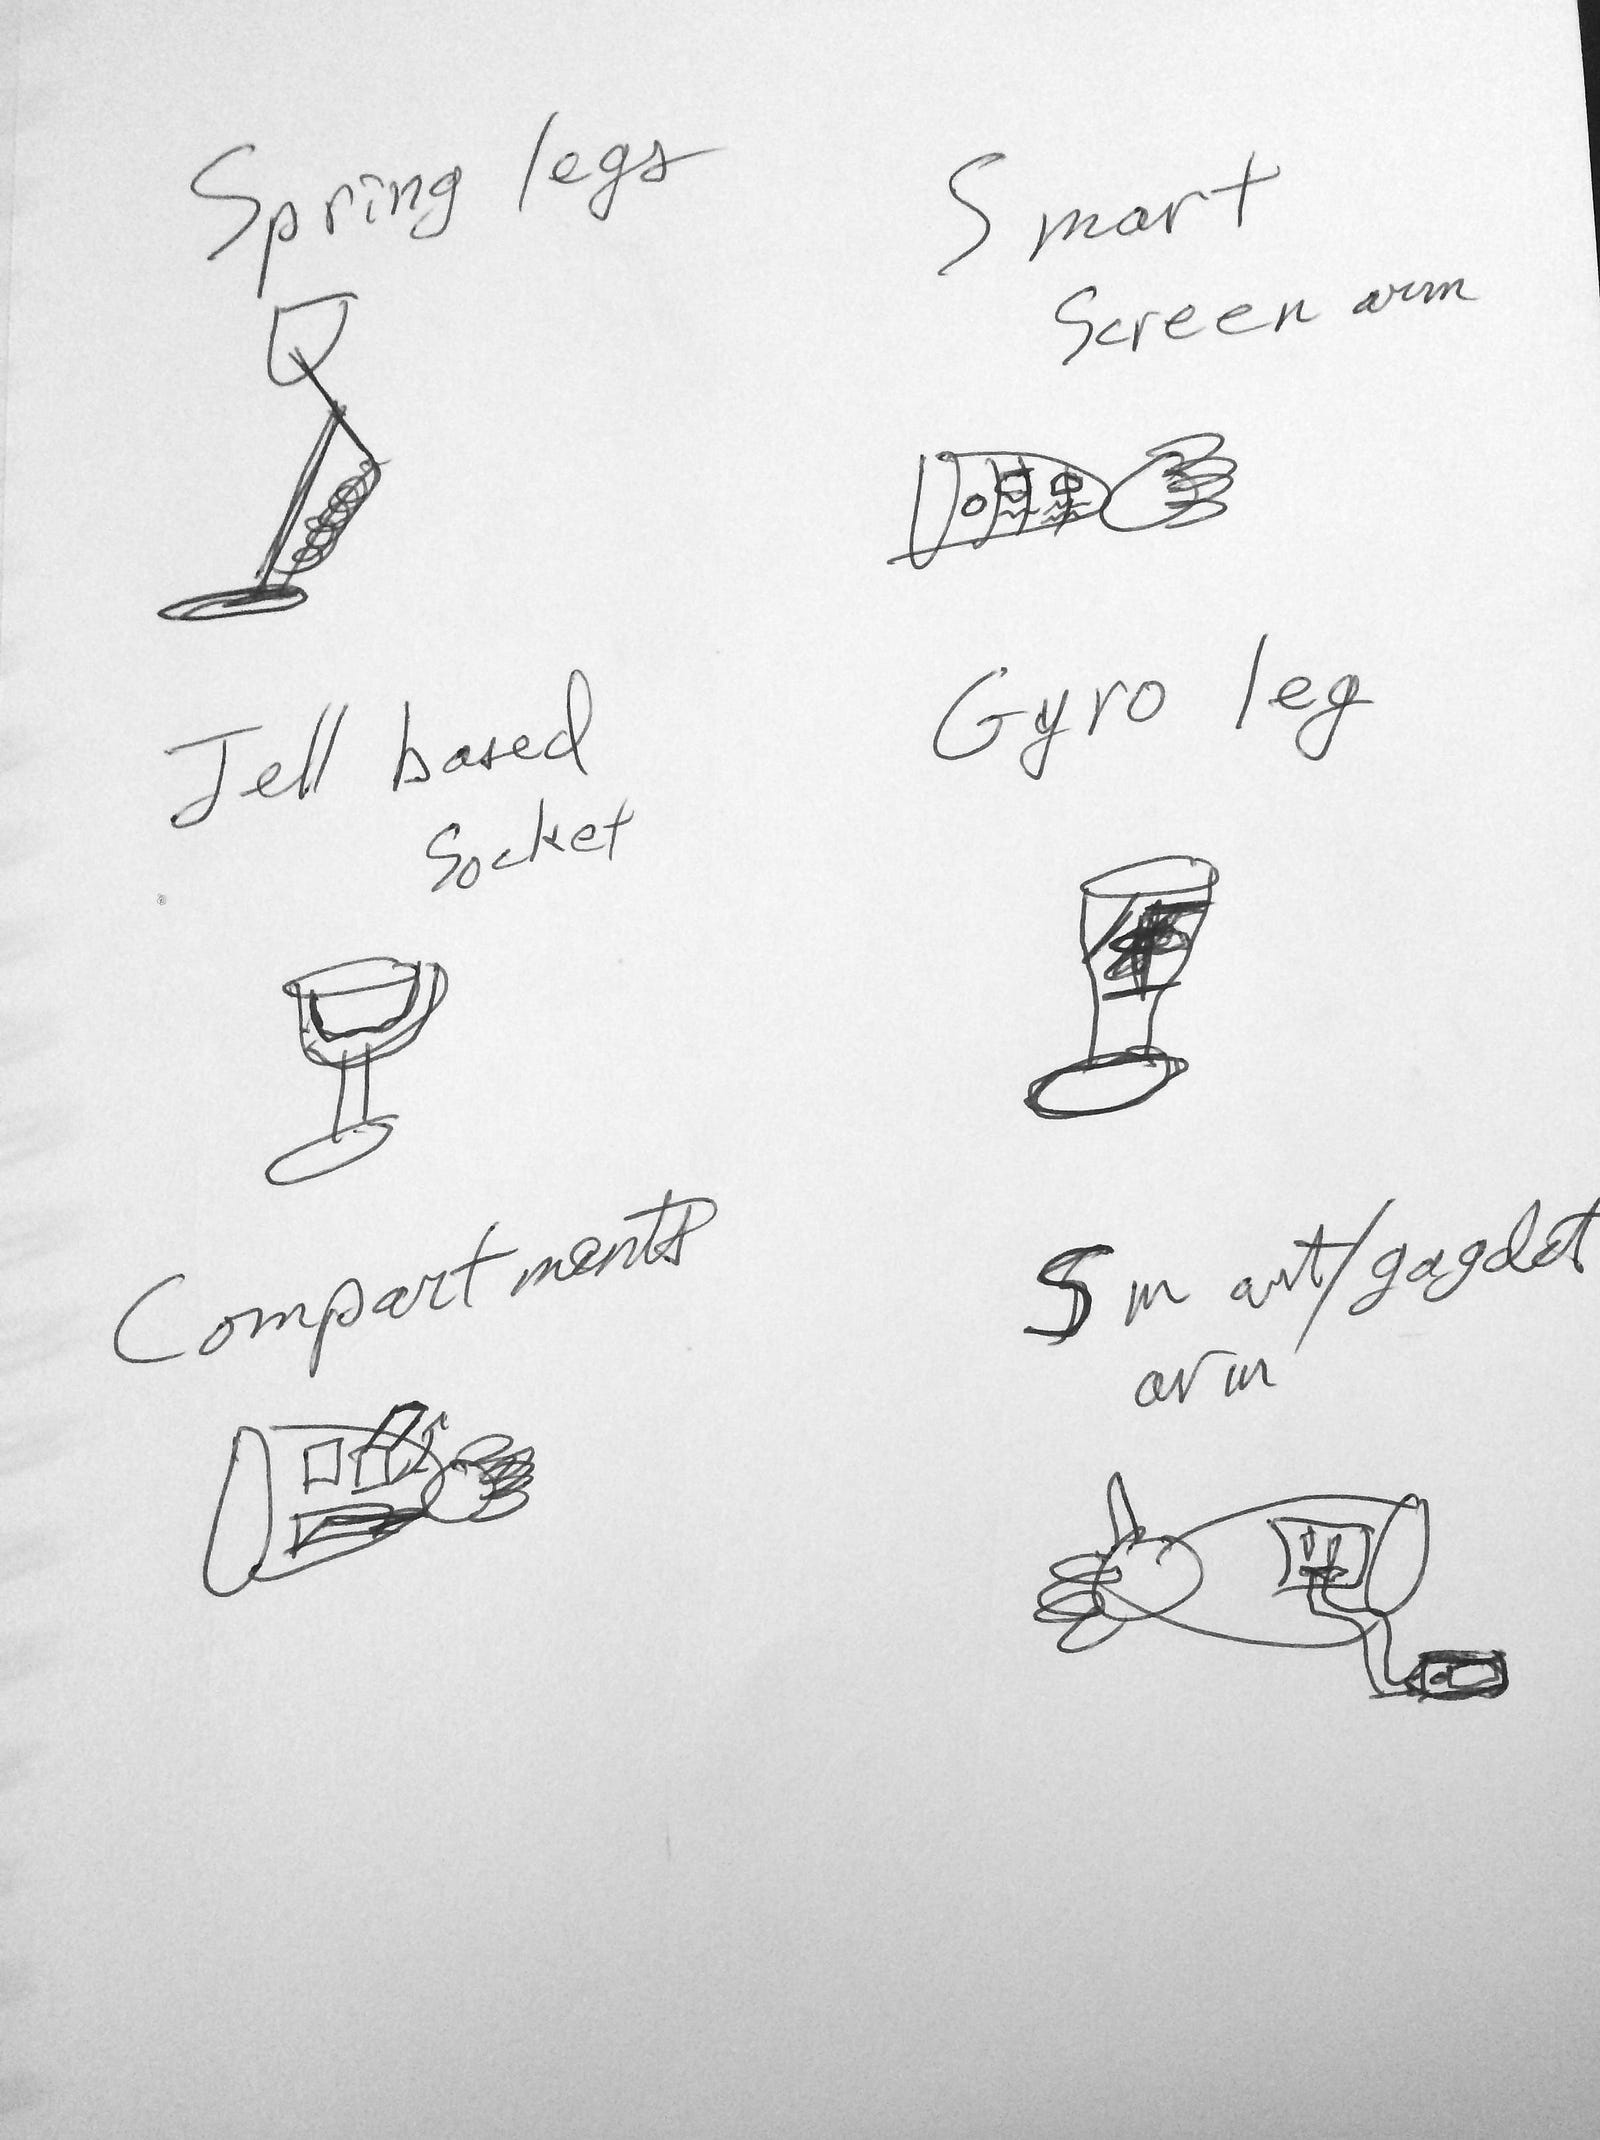 Spring legs
Smart
Screen arm
Jell based
Socket
Gyro leg
Compartments
Smart/gagdet
arm